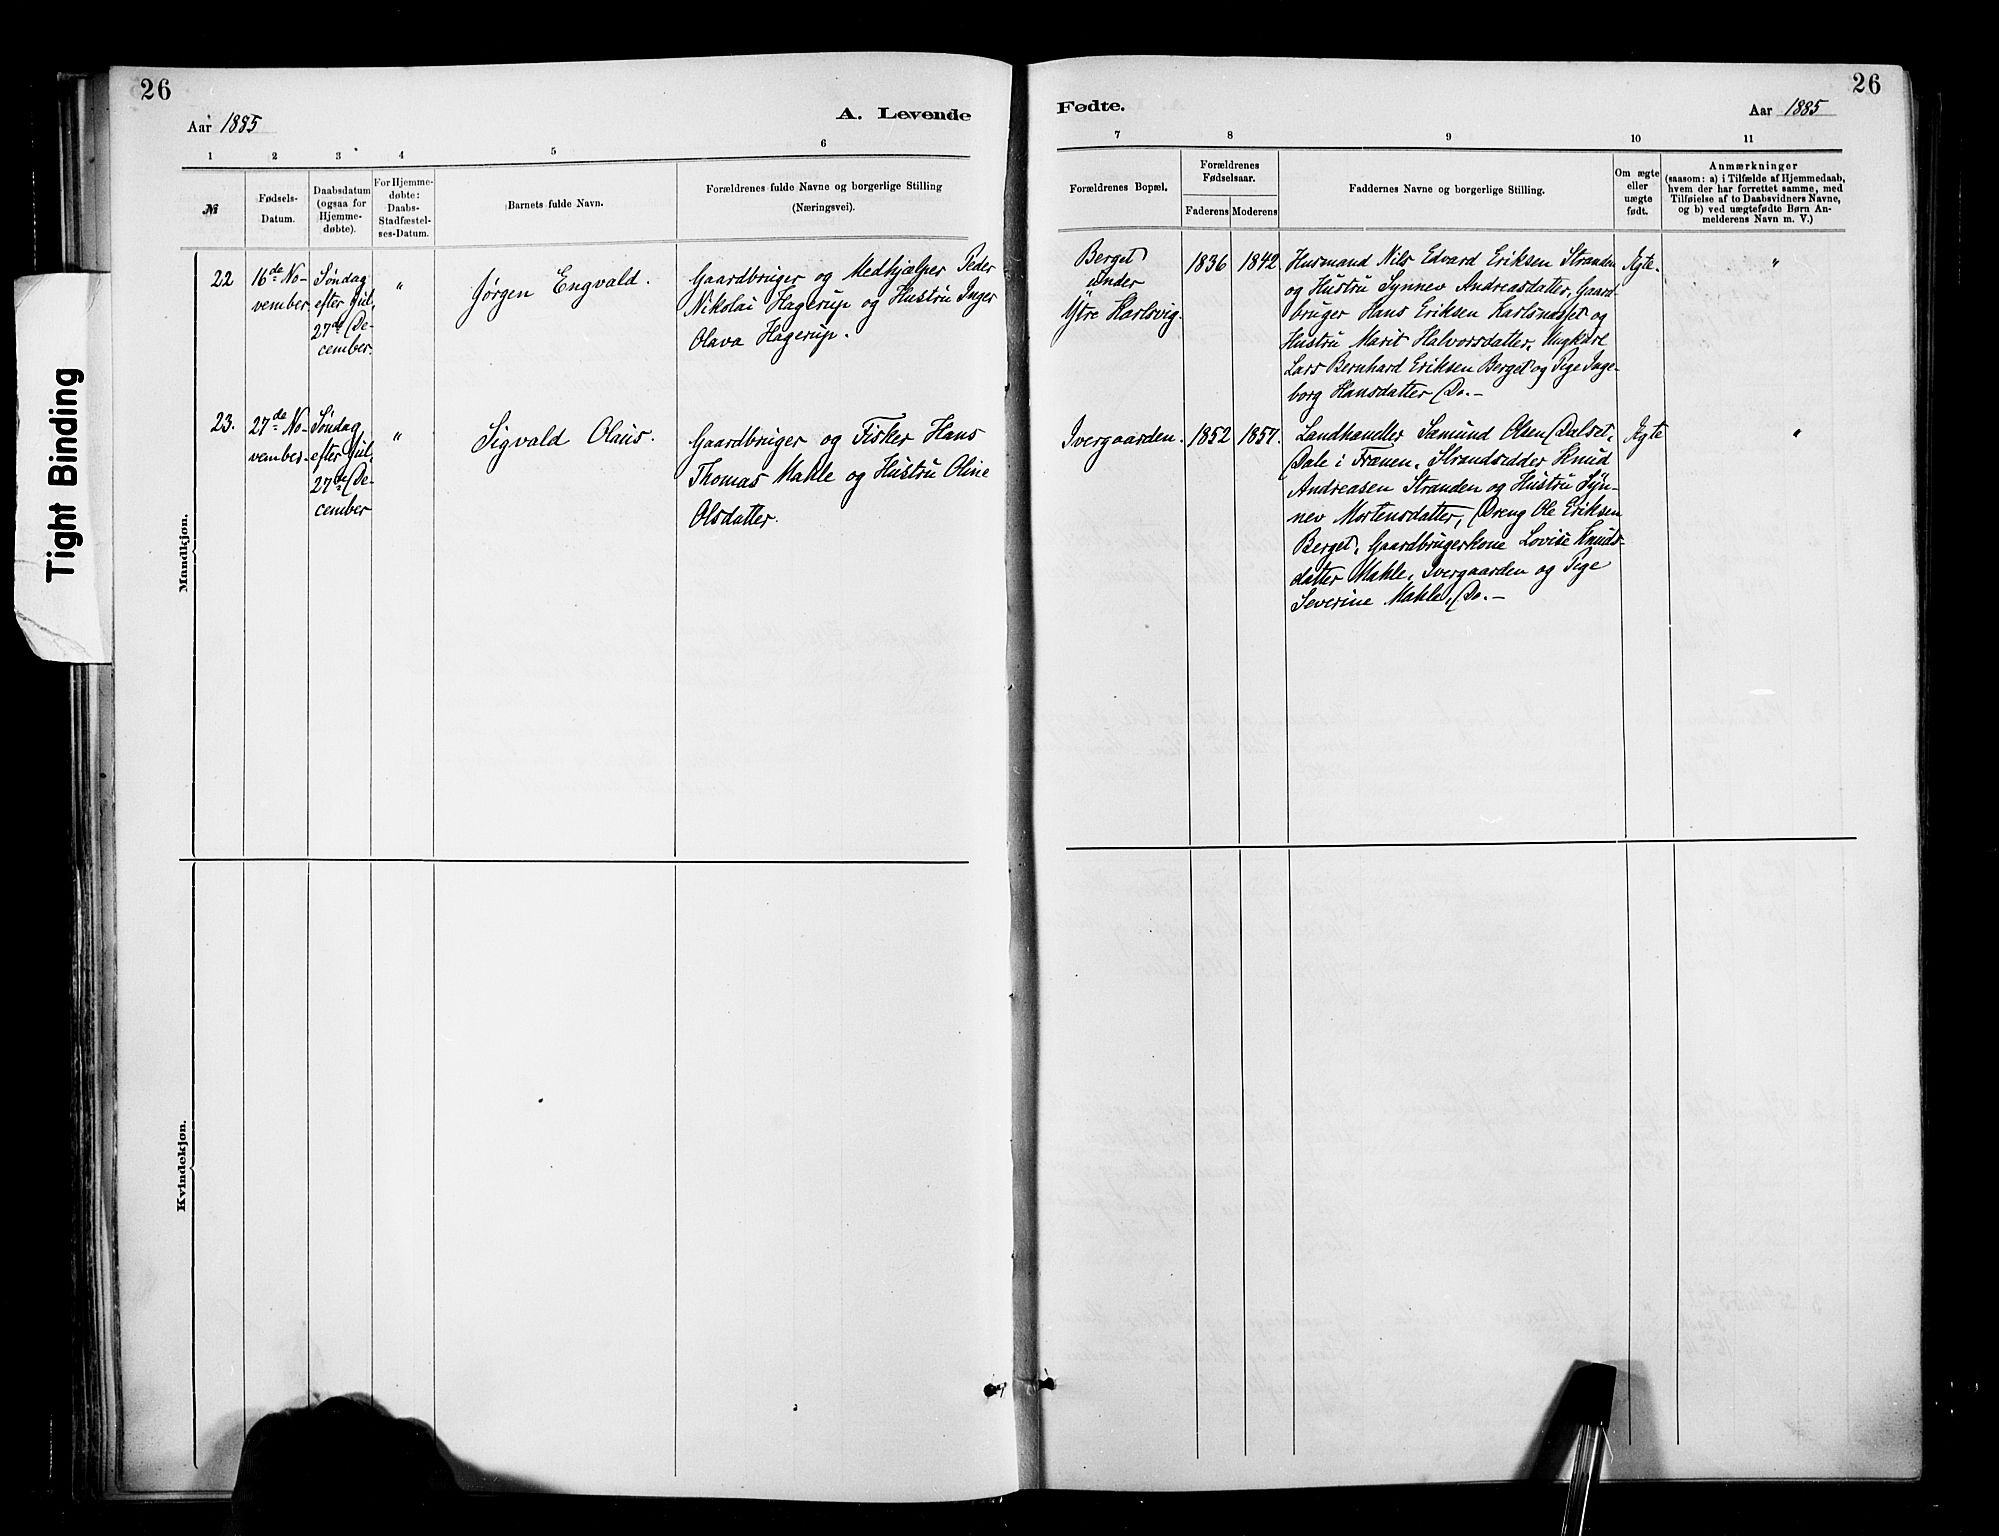 26
Aar 1885
A. Levende
1
2
3
4
5
6
№
Fødsels-
Datum.
Daabsdatum
(ogsaa for
Hjemme-
døbte).
For Hjemme-
døbte:
Daabs-
Stadfæstel-
ses-Datum.
Barnets fulde Navn.
Forældrenes fulde Navne og borgerlige Stilling
(Næringsvei).
Mandkjøn.
22
16de No-
vember.
Søndag
efter Jul,
27de De-
cember.
"
Jørgen Engvald.
Gaardbruger og Medhjælper Peder
Nikolai Hagerup og Hustru Inger
Olava Hagerup.
23.
27de No-
vember.
Søndag
efter Jul,
27de De-
cember
"
Sigvald Olaus.
Gaardbruger og Fisker Hans
Thomas Mahle og Hustru Oline
Olsdatter.
Kvindekjøn.
Tight Binding
26
Fødte.
Aar 1885
7
8
9
10
11
Forældrenes Bopæl.
Forældrenes
Fødselsaar.
Faderens
Moderens
Faddernes Navne og borgerlige Stilling.
Om ægte
eller
uægte
født.
Anmærkninger
(saasom: a) i Tilfælde af Hjemmedaab,
hvem der har forrettet samme, med
Tilføielse af to Daabsvidners Navne,
og b) ved uægtefødte Børn An-
melderens Navn m. V.)
Berget
under
Ytre Karlsvig.
1836
1842
Husmand Nils Edvard Eriksen Stranden
og Hustru Synnev Andreasdatter, Gaard-
bruger Hans Eriksen Karlsnæsset og
Hustru Marit Halvorsdatter, Ungkarl
Lars Bernhard Eriksen Berget og Pige Inge-
borg Hansdatter Do.-
Ægte.
"
Ivergaarden.
1852
1857.
Landhandler Sæmund Olsen Dalset,
Dale i Frænen, Strandsidder Knud
Andreasen Stranden og Hustru Syn-
nev Mortensdatter, Dreng Ole Eriksen
Berget, Gaardbrugerkone Lovise Knuds-
datter Mahle, Ivergaarden og Pige
Severine Mahle, Do.-
Ægte
"